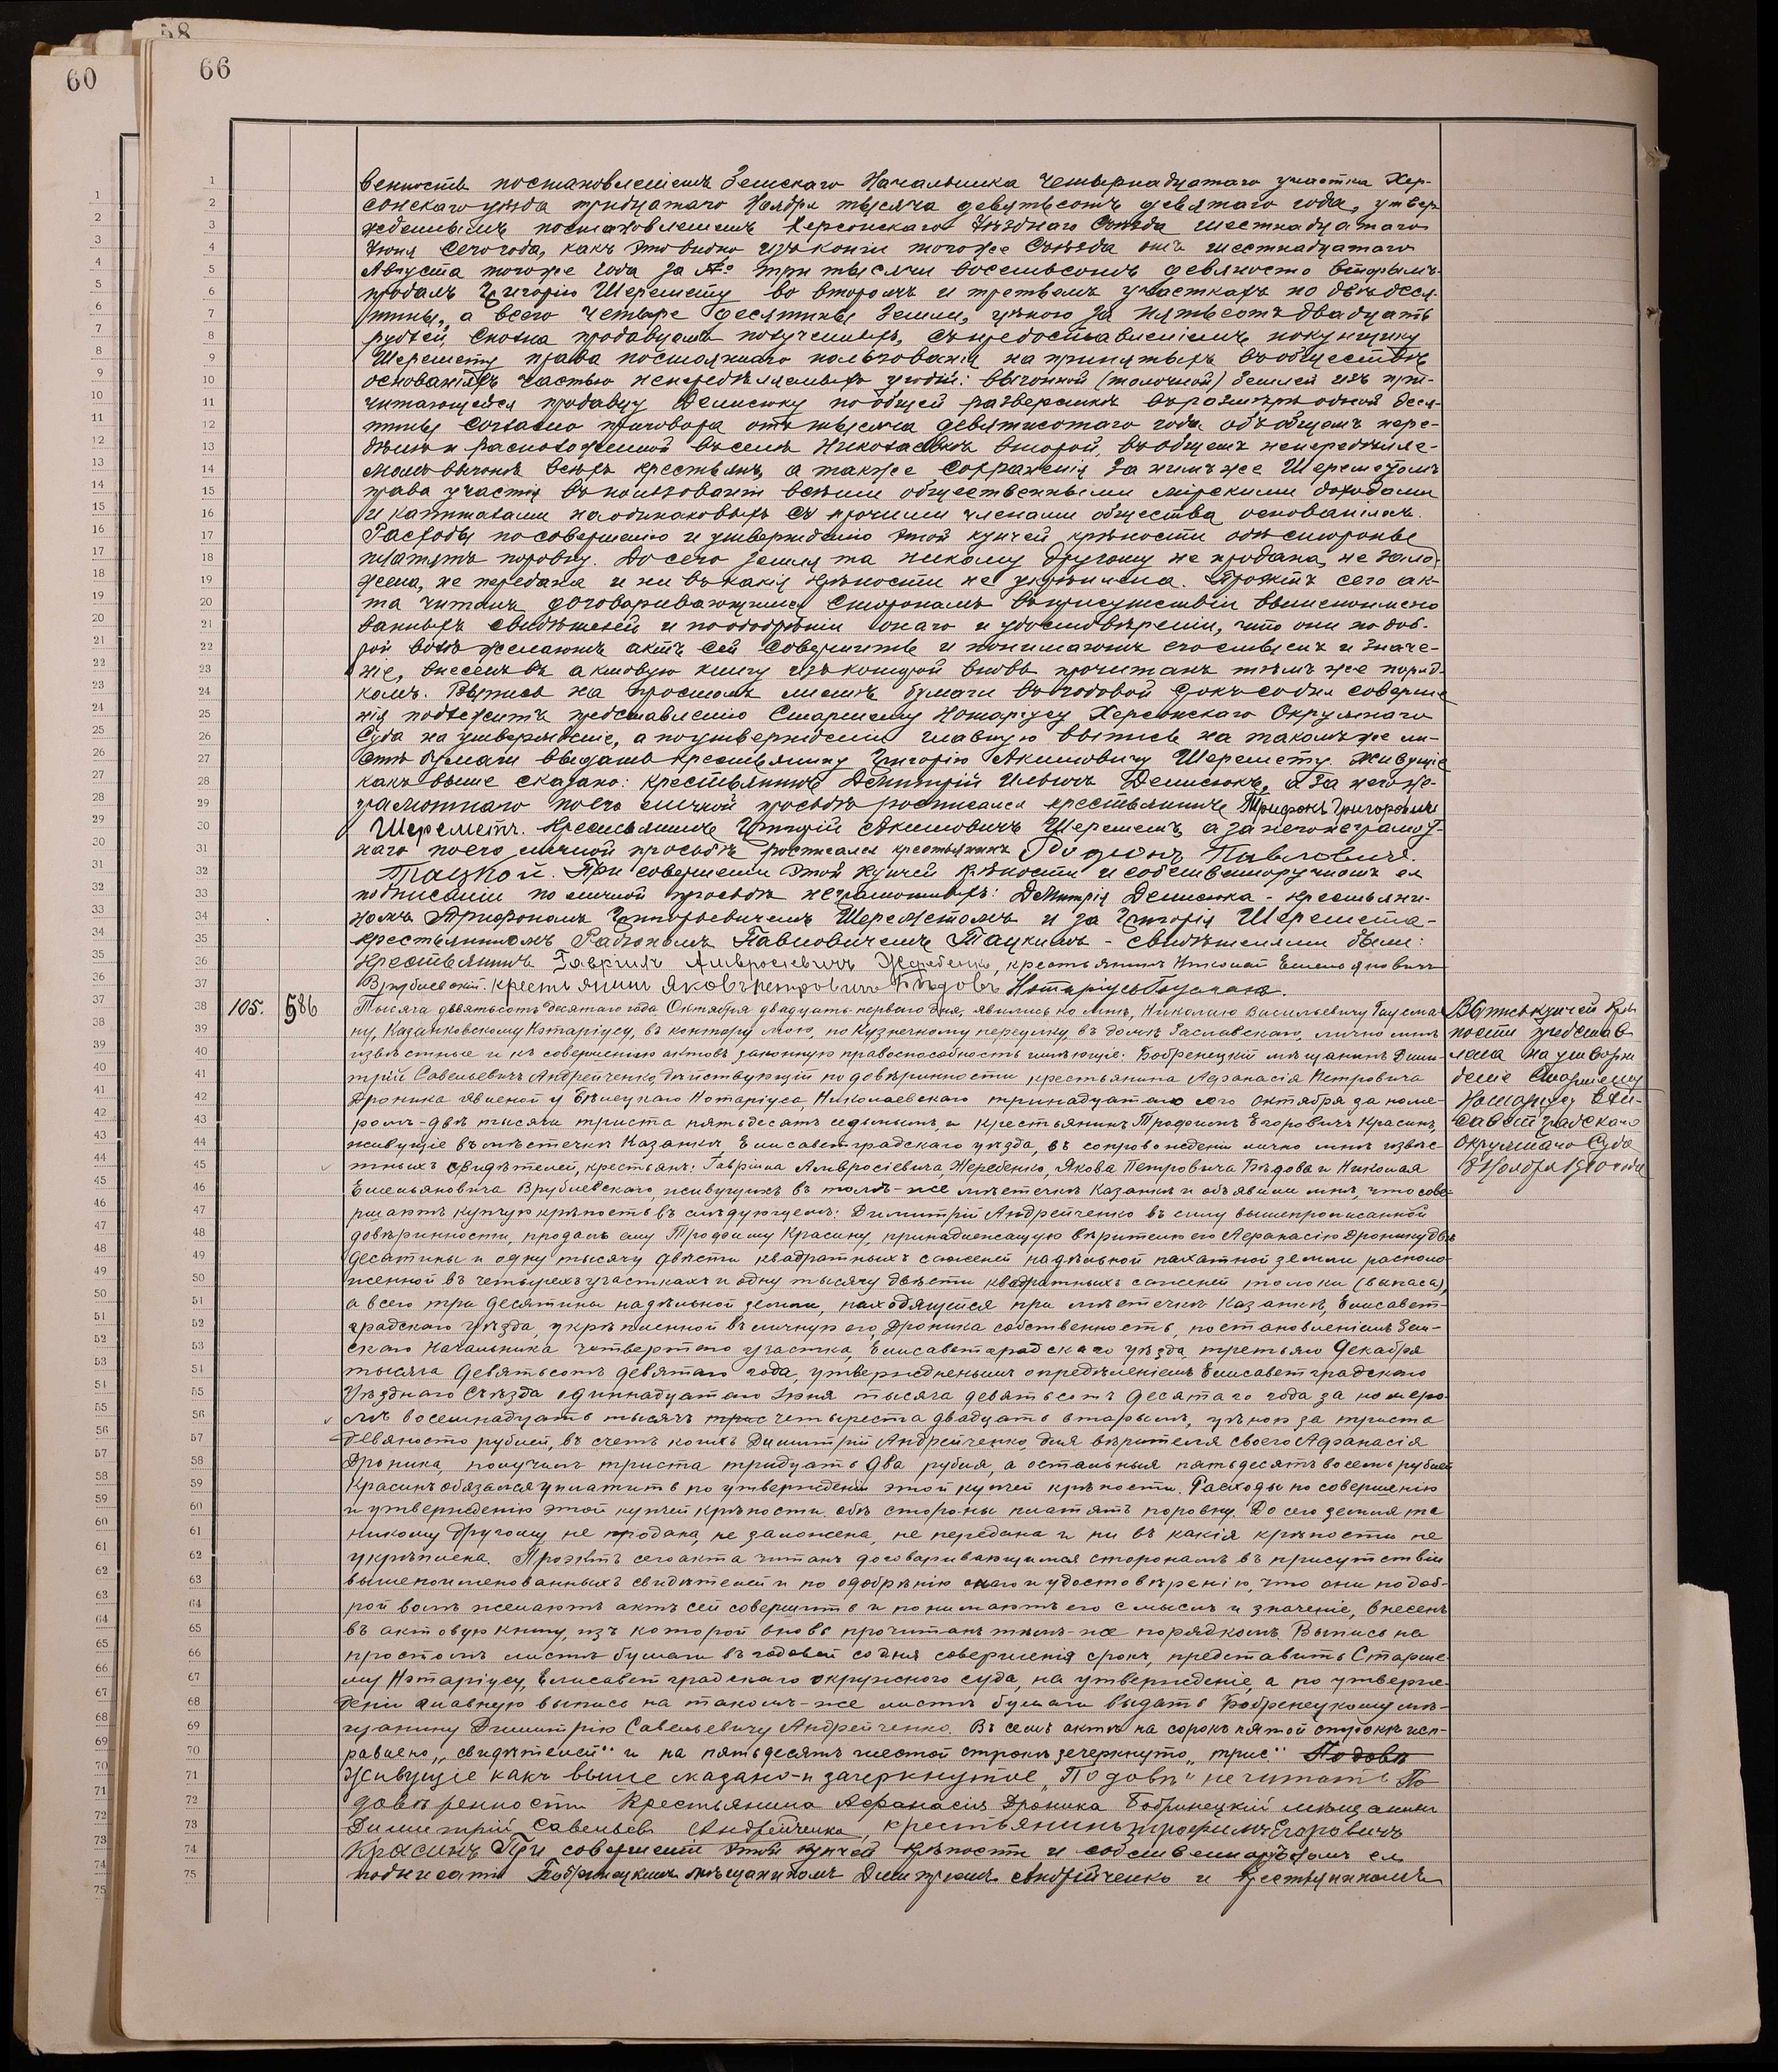 58
60
66
венность постановленіемъ Земскаго Начальника Четырнадцатаго участка Хер-
сонскаго уѣзда тридцатаго Ноября тысяча девятьсотъ девятаго года, утвер
жденнымъ постановленіемъ Херсонскаго Уѣзднаго Съѣзда шестнадцатаго
Іюня сего года, какъ это видно изъ копіи того же Съѣзда отъ шестнадцатаго
Августа того же года за № три тысячи восемьсотъ девяносто вторымъ
продалъ Григорію Шеремету во второмъ и третьемъ участкахъ по двѣ деся-
тины, а всего четыре десятины земли, цѣною за пятьсотъ двадцать
рублей, сполна продавцомъ полученныхъ, съ предоставленіемъ покупщику
Шеремету права постояннаго пользованія на принятыхъ въ обществѣ
основаніяхъ частью непередѣляемыхъ угодій: выгонной (толочной) землей изъ при-
читающейся продавцу Денисюку по общей разверсткѣ въ размѣрѣ одной деся-
тины согласно приговора отъ тысяча девятисотаго года объ общемъ пере-
дѣлѣ и расположенной въ селѣ Николаевкѣ второй, въ общемъ непередѣляе-
момъ выгонѣ всѣхъ крестьянъ, а также сохраненія за нимъ же Шереметомъ
права участія въ пользованіи всѣми общественными мірскими доходами
и капиталами на одинаковыхъ съ прочими членами общества основаніяхъ.
Расходы по совершенію и утвержденію этой купчей крѣпости обѣ стороны
платятъ поровну. До сего земля та никому другому не продана, не зало-
жена, не передана и ни въ какія крѣпости не укрѣплена. Проектъ сего ак-
та читанъ договаривающимся сторонамъ въ присутствіи вышепоимено
ванныхъ свидѣтелей и по одобреніи онаго и удостовѣреніи, что они по доб-
рой волѣ желаютъ актъ сей совершить и понимаютъ его смыслъ и значе-
ніе, внесенъ въ актовую книгу изъ которой вновь прочитанъ тѣмъ же поряд-
комъ. Выпись на простомъ листѣ бумаги въ годовой срокъ со дня соверше
нія подлежитъ представленію Старшему Нотаріусу Херсонскаго Окружнаго
Суда на утвержденіе, а по утвержденіи главную выпись на такомъ же ли-
стѣ бумаги выдать крестьянину Григорію Акимовичу Шеремету. Живущіе
какъ выше сказано: крестьянинъ Дмитрій Ильичъ Денисюкъ, а за него не-
грамотнаго по его личной просьбѣ росписался крестьянинъ Трифонъ Григорьевичъ
Шереметъ. Крестьянинъ Григорій Акимовичъ Шереметъ, а за него неграмот-
наго по его личной просьбѣ росписался крестьянинъ Родіонъ Павловичъ.
Тацкой. При совершеніи этой купчей крѣпости и собственноручномъ ея
подписаніи по личной просьбѣ неграмотныхъ: Дмитрія Денисюка - крестьяни-
номъ Трифономъ Григорьевичемъ Шереметомъ и за Григорія Шеремета -
крестьяниномъ Родіономъ Павловичемъ Тацкимъ - свидѣтелями были:
Крестьянинъ Гавріилъ Амвросіевичъ Жеребенко, крестьянинъ Николай Емельяновичъ
Врублевскій. крестьянинъ Яковъ Петровичъ Бѣдовъ Нотаріусъ Гаусманъ.
105. 586 Тысяча девятьсотъ десятаго года Октября двадцать перваго дня, явились ко мнѣ, Николаю Васильевичу Гаусма-
ну, Казанковскому Нотаріусу, въ контору мою, по Кузнечному переулку, въ домѣ Заславскаго, лично мнѣ
извѣстные и къ совершенію актовъ законную правоспособность имѣющіе: Бобренецкій мѣщанинъ Дими-
трій Савельевичъ Андрейченко, дѣйствующій по довѣренности крестьянина Афанасія Петровича
Дроника явленой у Нотаріуса, Николаевскаго тринадцатаго сего октября за номе-
ромъ - двѣ тысячи триста пятьдесятъ седьмымъ, и крестьянинъ Трофимъ Егоровичъ Красинъ,
живущіе въ мѣстечкѣ Казанкѣ, Елисаветградскаго уѣзда, въ сопровожденіи лично мнѣ извѣс-
тныхъ свидѣтелей, крестьянъ: Гавріила Амвросіевича Жеребенко, Якова Петровича Бѣдова и Николая
Емельяновича Врублевскаго, живущихъ въ томъ-же мѣстечкѣ Казанкѣ и объявили мнѣ, что сове-
ршаютъ купчую крѣпость въ слѣдующемъ: Димитрій Андрейченко въ силу вышепрописанной
довѣренности, продалъ ему Трофиму Красину, принадлежащую вѣрителю его Афанасію Дронику двѣ
десятины и одну тысячу двѣсти квадратныхъ саженей надѣльной пахатной земли располо-
женной въ четырехъ участкахъ и одну тысячу двѣсти квадратныхъ саженей толоки (выпаса),
а всего три десятины надѣльной земли, находящейся при мѣстечкѣ Казанкѣ, Елисавет-
градскаго уѣзда, укрѣпленной въ личную его, Дроника собственность, постановленіемъ Зем-
скаго Начальника четвертаго участка, Елисаветградскаго уѣзда, третьяго Декабря
тысяча девятьсотъ девятаго года, утвержденнымъ опредѣленіемъ Елисаветградскаго
Уѣзднаго Съѣзда одиннадцатаго Іюня тысяча девятьсотъ десятаго года за номеро-
мъ восемнадцать тысячъ трис четыреста двадцать вторымъ, цѣною за триста
девяносто рублей, въ счетъ коихъ Димитрій Андрейченко, для вѣрителя своего Афанасія
Дроника, получилъ триста тридцать два рубля, а остальныя пятьдесятъ восемь рублей
Красинъ обязался уплатить по утвержденіи этой купчей крѣпости. Расходы по совершенію
и утвержденію этой купчей крѣпости обѣ стороны платятъ поровну. До сего земля та
никому другому не продана, не заложена, не передана и ни въ какія крѣпости не
укрѣплена. Проэктъ сего акта читанъ договаривающимся сторонамъ въ присутствіи
вышепоименованныхъ свидѣтелей и по одобренію онаго и удостовѣренію, что они по доб-
рой волѣ желаютъ актъ сей совершить и понимаютъ его смыслъ и значеніе, внесенъ
въ актовую книгу, изъ которой вновь прочитанъ тѣмъ-же порядкомъ. Выпись на
простомъ листѣ бумаги въ годовой со дня совершенія срокъ, представить Старше-
му Нотаріусу, Елисаветградскаго окружнаго суда, на утвержденіе, а по утверж-
деніи главную выпись на такомъ-же листѣ бумаги выдать Бобренецкому мѣ-
щанину Димитрію Савельевичу Андрейченко. Въ семъ актѣ на сорокъ пятой строкѣ исп-
равлено „свидѣтелей" и на пятьдесятъ шестой строкѣ зачеркнуто „трис." По довѣ
Живущіе какъ выше сказано - и зачеркнутое „По довѣ" не читать По
довѣренности Крестьянина Афанасія Дроника Бобринецкій мѣщанинъ
Димитрій Савельевъ Андрейченко, крестьянинъ Трофимъ Егоровичъ
Красинъ При совершеніи этой купчей крѣпости и собственноручномъ ея
подписаніи Бобринецкимъ мѣщаниномъ Димитріемъ Андрейченко и крестьяниномъ
Выпись купчей крѣ
пости представ
лена на утверж
деніе Старшему
Нотаріусу Ели-
саветградскаго
Окружнаго Суда
8 Ноября 1910 года